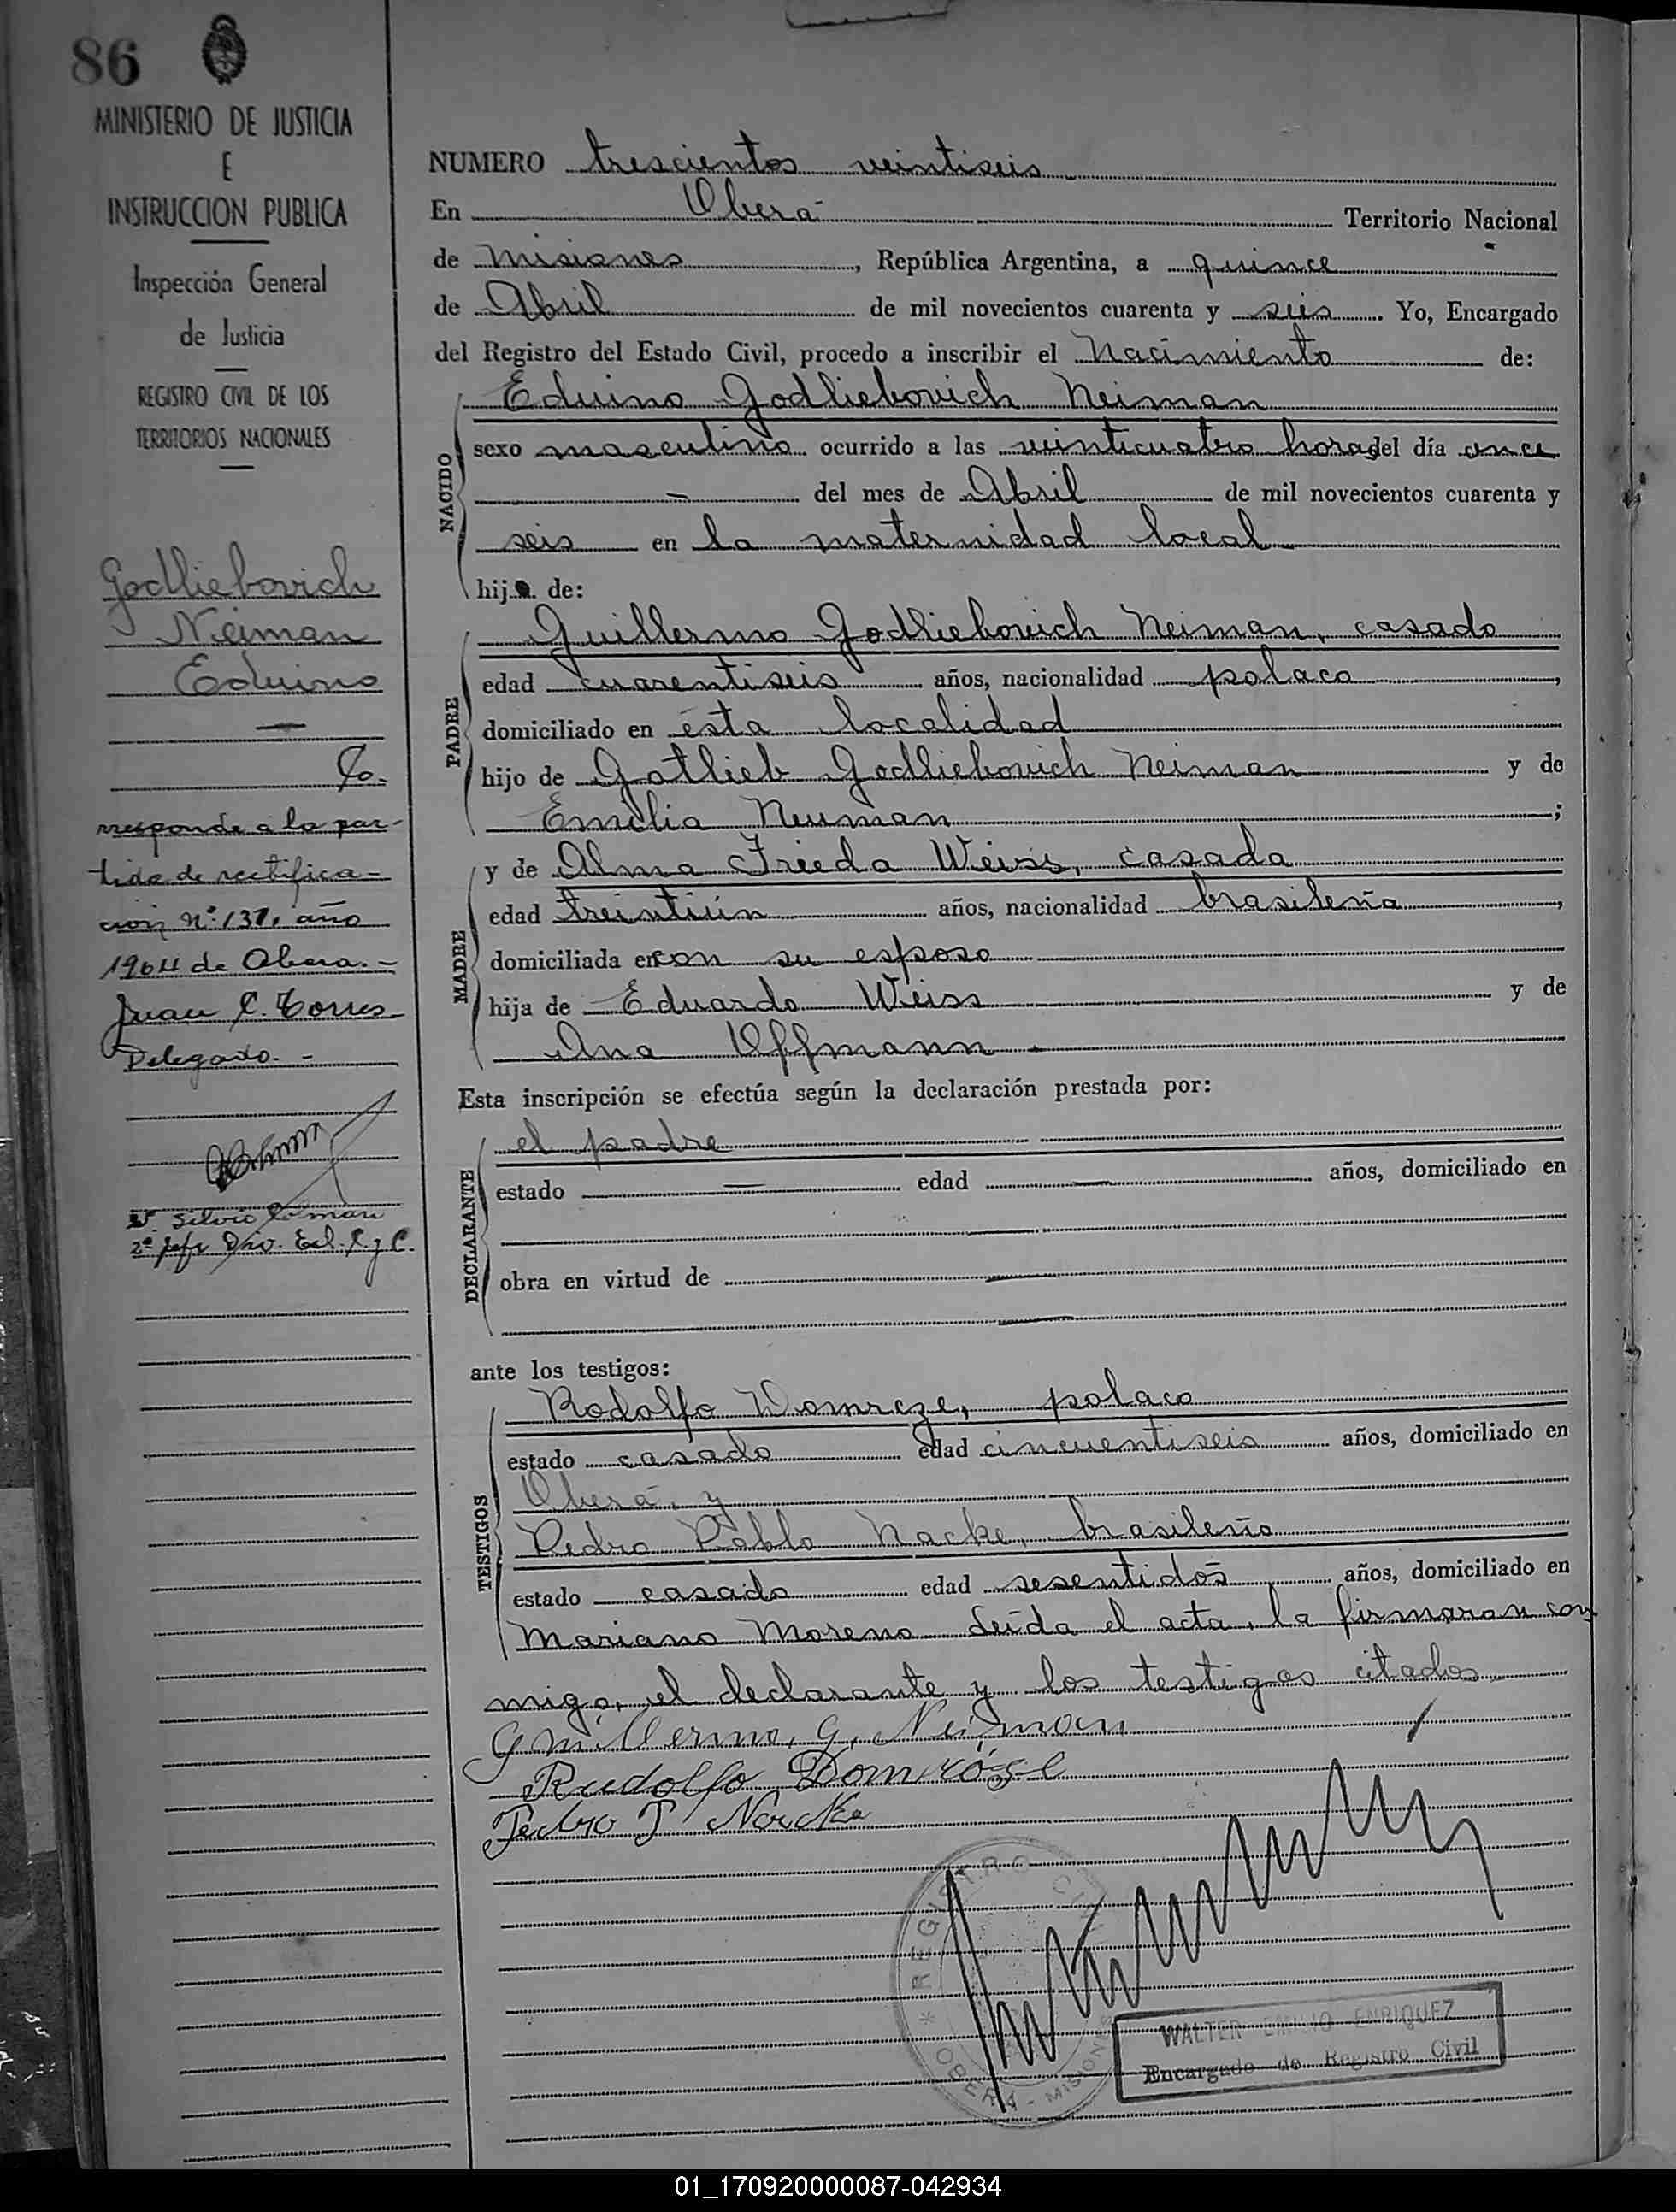 86
MINISTERIO DE JUSTICIA
E
INSTRUCCION PUBLICA
Inspección General
de Justicia
REGISTRO CIVIL DE LOS
TERRITORIOS NACIONALES
Godliebovich
Neiman
Eduino
Co-
rresponde a la par-
tida de rectifica-
ción Nº 137, año
1964 de Obera.-
Juan C. Torres
Delegado.-
Silvio Colman
2º Jefe Div.
NUMERO trescientos veintiseis
En Oberá Territorio Nacional
de Misiones, República Argentina, a quince
de Abril de mil novecientos cuarenta y seis. Yo, Encargado
del Registro del Estado Civil, procedo a inscribir el Nacimiento de:
NACIDO
Eduino Godliebovich Neiman
sexo masculino ocurrido a las veinticuatro horas del día once
del mes de Abril de mil novecientos cuarenta y
seis en la maternidad local
hijo de:
PADRE
Guillermo Godliebovich Neiman, casado
edad cuarentiseis años, nacionalidad polaco,
domiciliado en ésta localidad
hijo de Gotlieb Godliebovich Neiman y de
Emilia Neuman;
MADRE
y de Alma Frieda Weiss, casada
edad treintiún años, nacionalidad brasileña,
domiciliada en con su esposo
hija de Eduardo Weiss y de
Ana Offmann
Esta inscripción se efectúa según la declaración prestada por:
DECLARANTE
el padre
estado — edad — años, domiciliado en
obra en virtud de
ante los testigos:
TESTIGOS
Rodolfo Domreze, polaco
estado casado edad cincuentiseis años, domiciliado en
Oberá, y
Pedro Pablo Nacke, brasileño
estado casado edad sesentidós años, domiciliado en
Mariano Moreno Leída el acta, la firmaron con
migo, el declarante y los testigos citados
Guillermo, G, Neiman
Rudolfo Domröse
Pedro P Nacke
REGISTRO CIVIL
* OBERÁ - MISIONES
WALTER EMILIO ENRIQUEZ
Encargado de Registro Civil
01_170920000087-042934